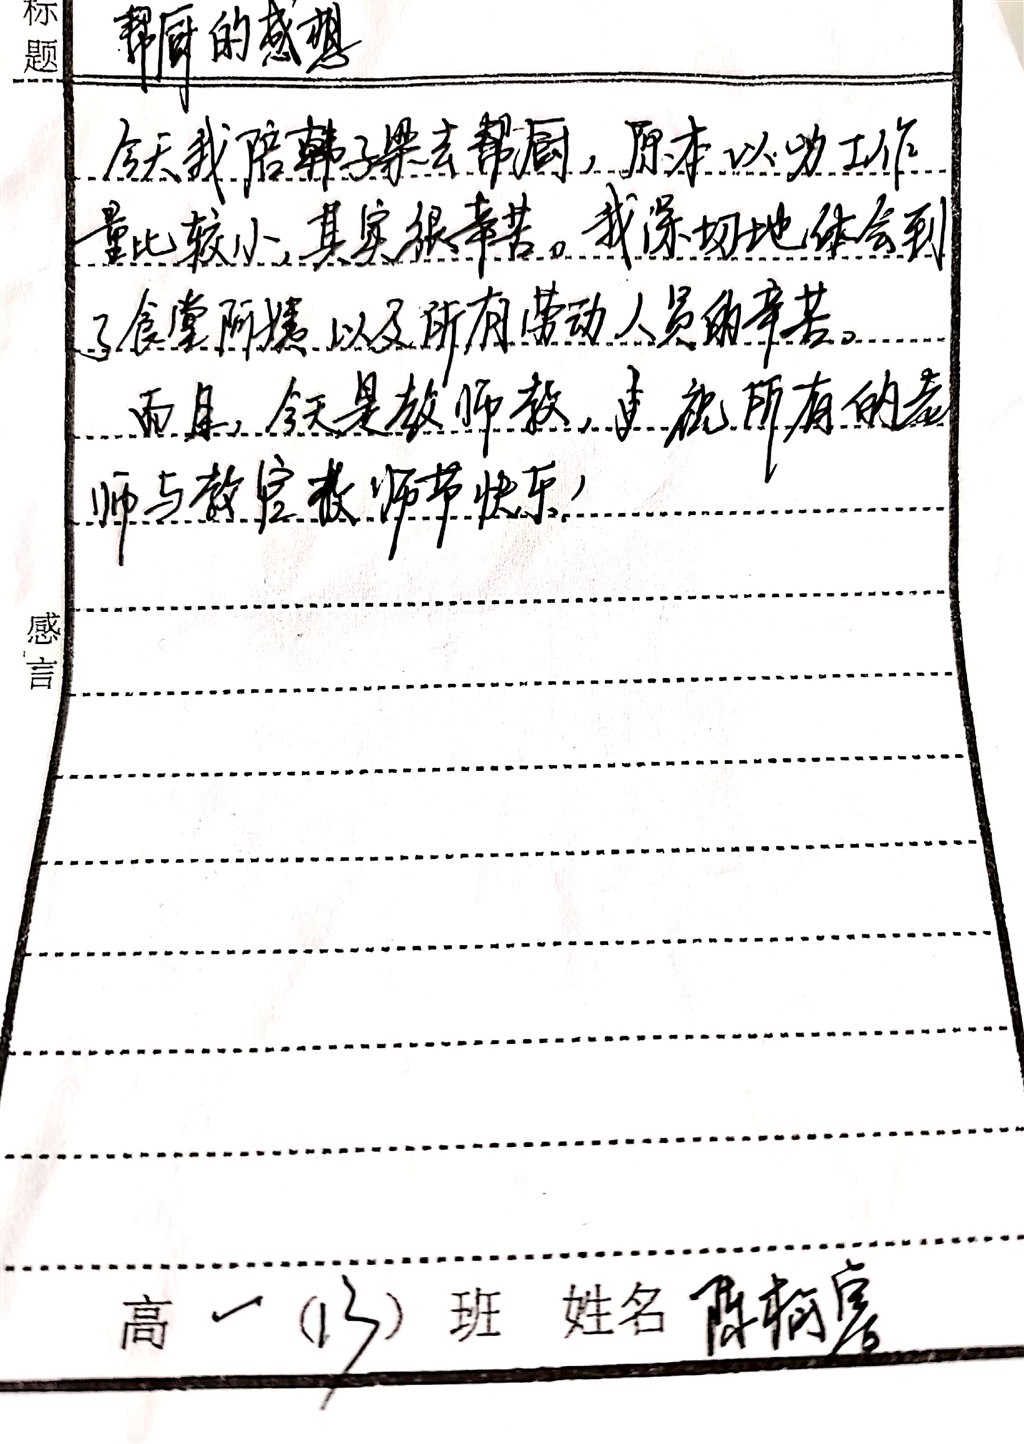 标题 帮厨的感想
今天我陪韩子梁去帮厨，原本以为工作
量比较小，其实很辛苦。我深切地体会到
了食堂阿姨以及所有劳动人员的辛苦。
而且，今天是教师教，祝所有的老
师与教官教师节快乐！
感言
高一（13）班 姓名 陈